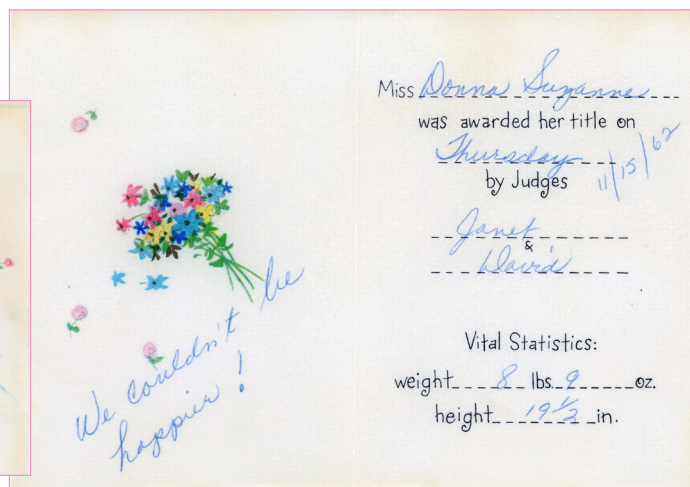 We couldn't be
happier!
Miss Donna Suzanne
was awarded her title on
Thursday 11/15/62
by Judges
Janet
&
David
Vital Statistics:
weight 8 lbs. 9 oz.
height 19 1/2 in.